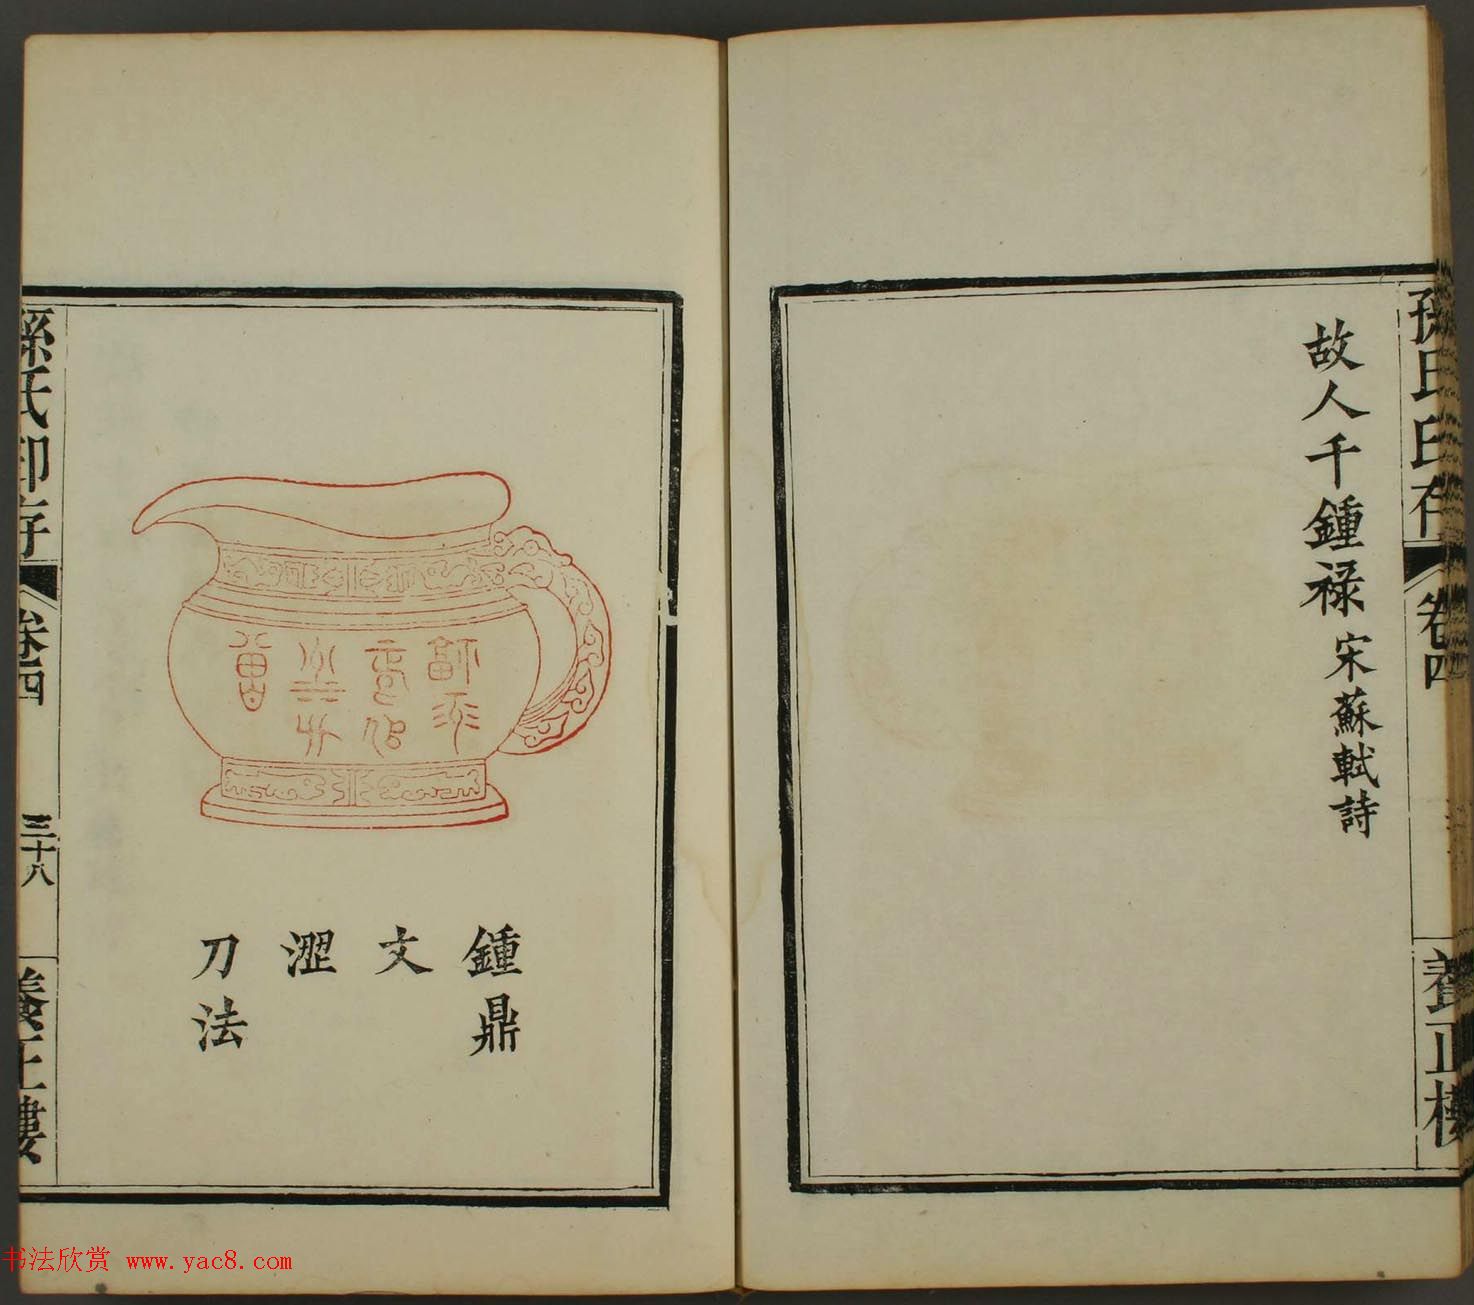 孫氏印存
卷四
養正樓
故人千鍾祿
宋蘇軾詩
鍾鼎
文
澀
刀法
孫氏印存
卷四
三十八
養正樓
书法欣赏 www.yac8.com